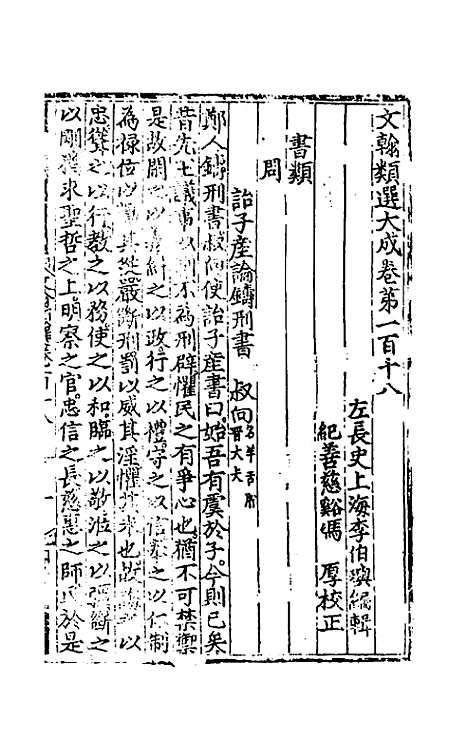 文翰類選大成卷第一百十八
左長史上海李伯璵編輯
紀善慈谿馮　厚校正
書類
周
詒子產論鑄刑書　叔向名羊舌肸晉大夫
鄭人鑄刑書叔向使詒子產書曰始吾有虞於子今則已矣
昔先王議事以制不為刑辟懼民之有爭心也猶不可禁禦
是故閑之以義糾之以政行之以禮守之以信奉之以仁制
為祿位以其從嚴斷刑罰以威其淫懼其未也故誨之以
忠聳之以行教之以務使之以和臨之以敬涖之以彊斷之
以剛猶求聖哲之上明察之官忠信之長慈惠之師民於是